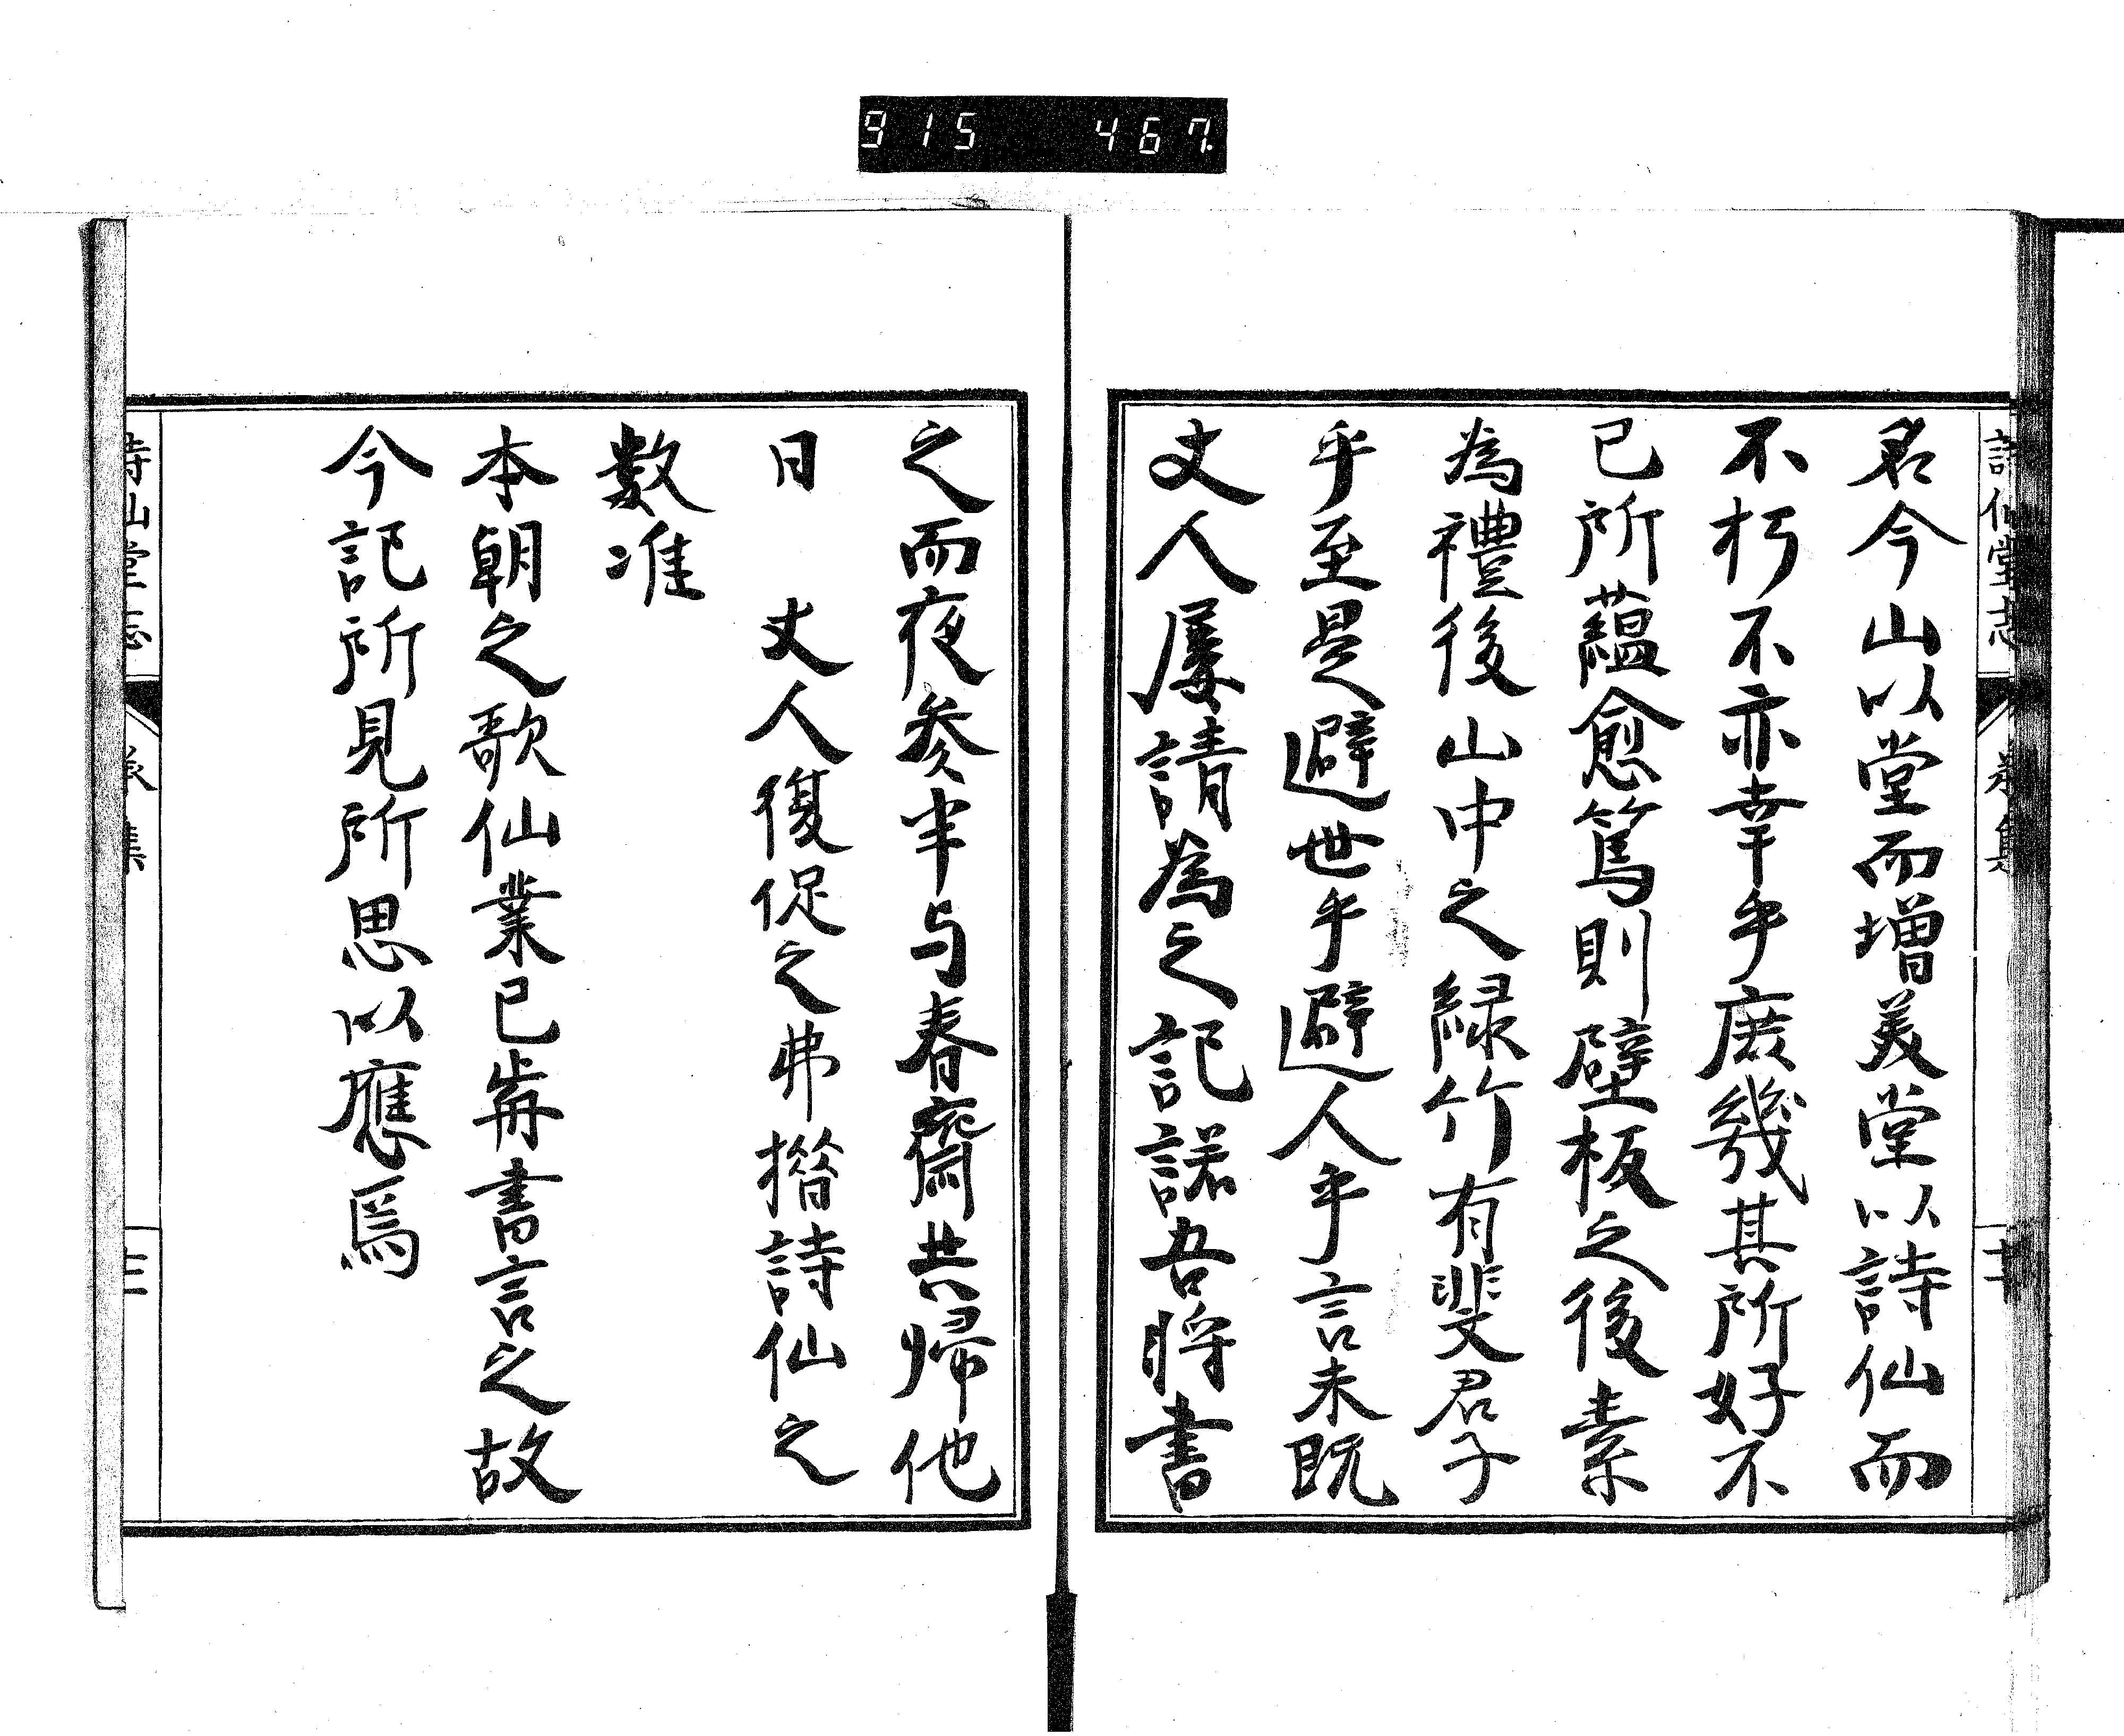 915 467.
詩仙堂志
名今山以堂而增美堂以詩仙而
不朽不亦幸乎庶幾其所好不
已所蘊愈篤則壁板之後素
為禮後山中之緑竹有斐君子
乎至是避世乎避人乎言未既
丈人屢請為之記諾吾將書
之而夜參半与春齋共帰他
日　丈人復促之弗撍詩仙之
數准
本朝之歌仙業已耑書言之故
今記所見所思以應焉
詩仙堂志